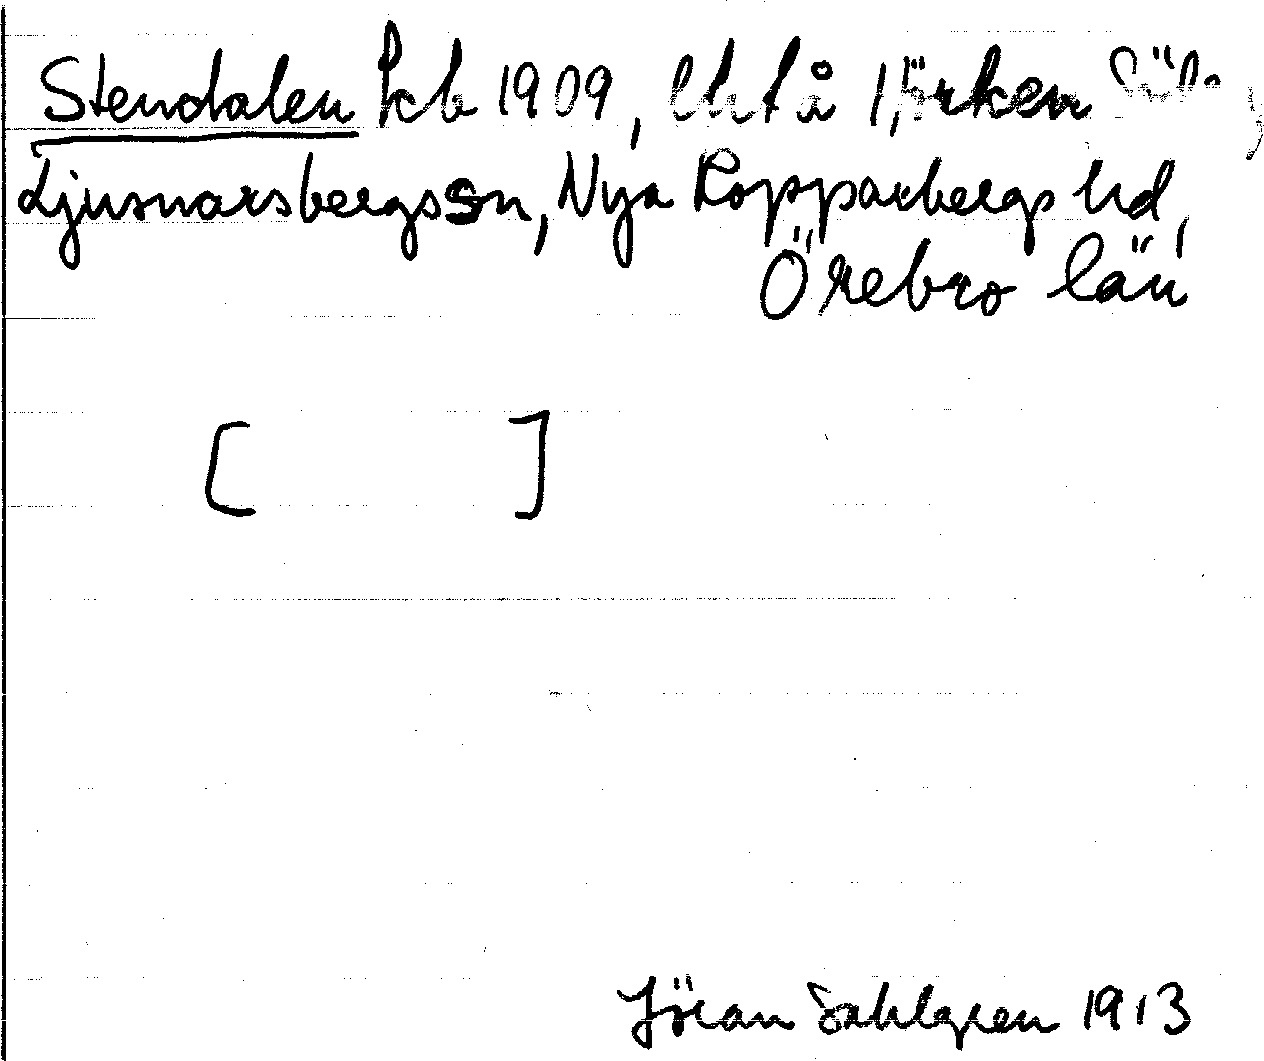 Stendalen kb 1909, lht å Hörken
Ljusnarsbergs sn, Nya Kopparbergs hd,
Örebro län
[ ]
Jöran Sahlgren 1913